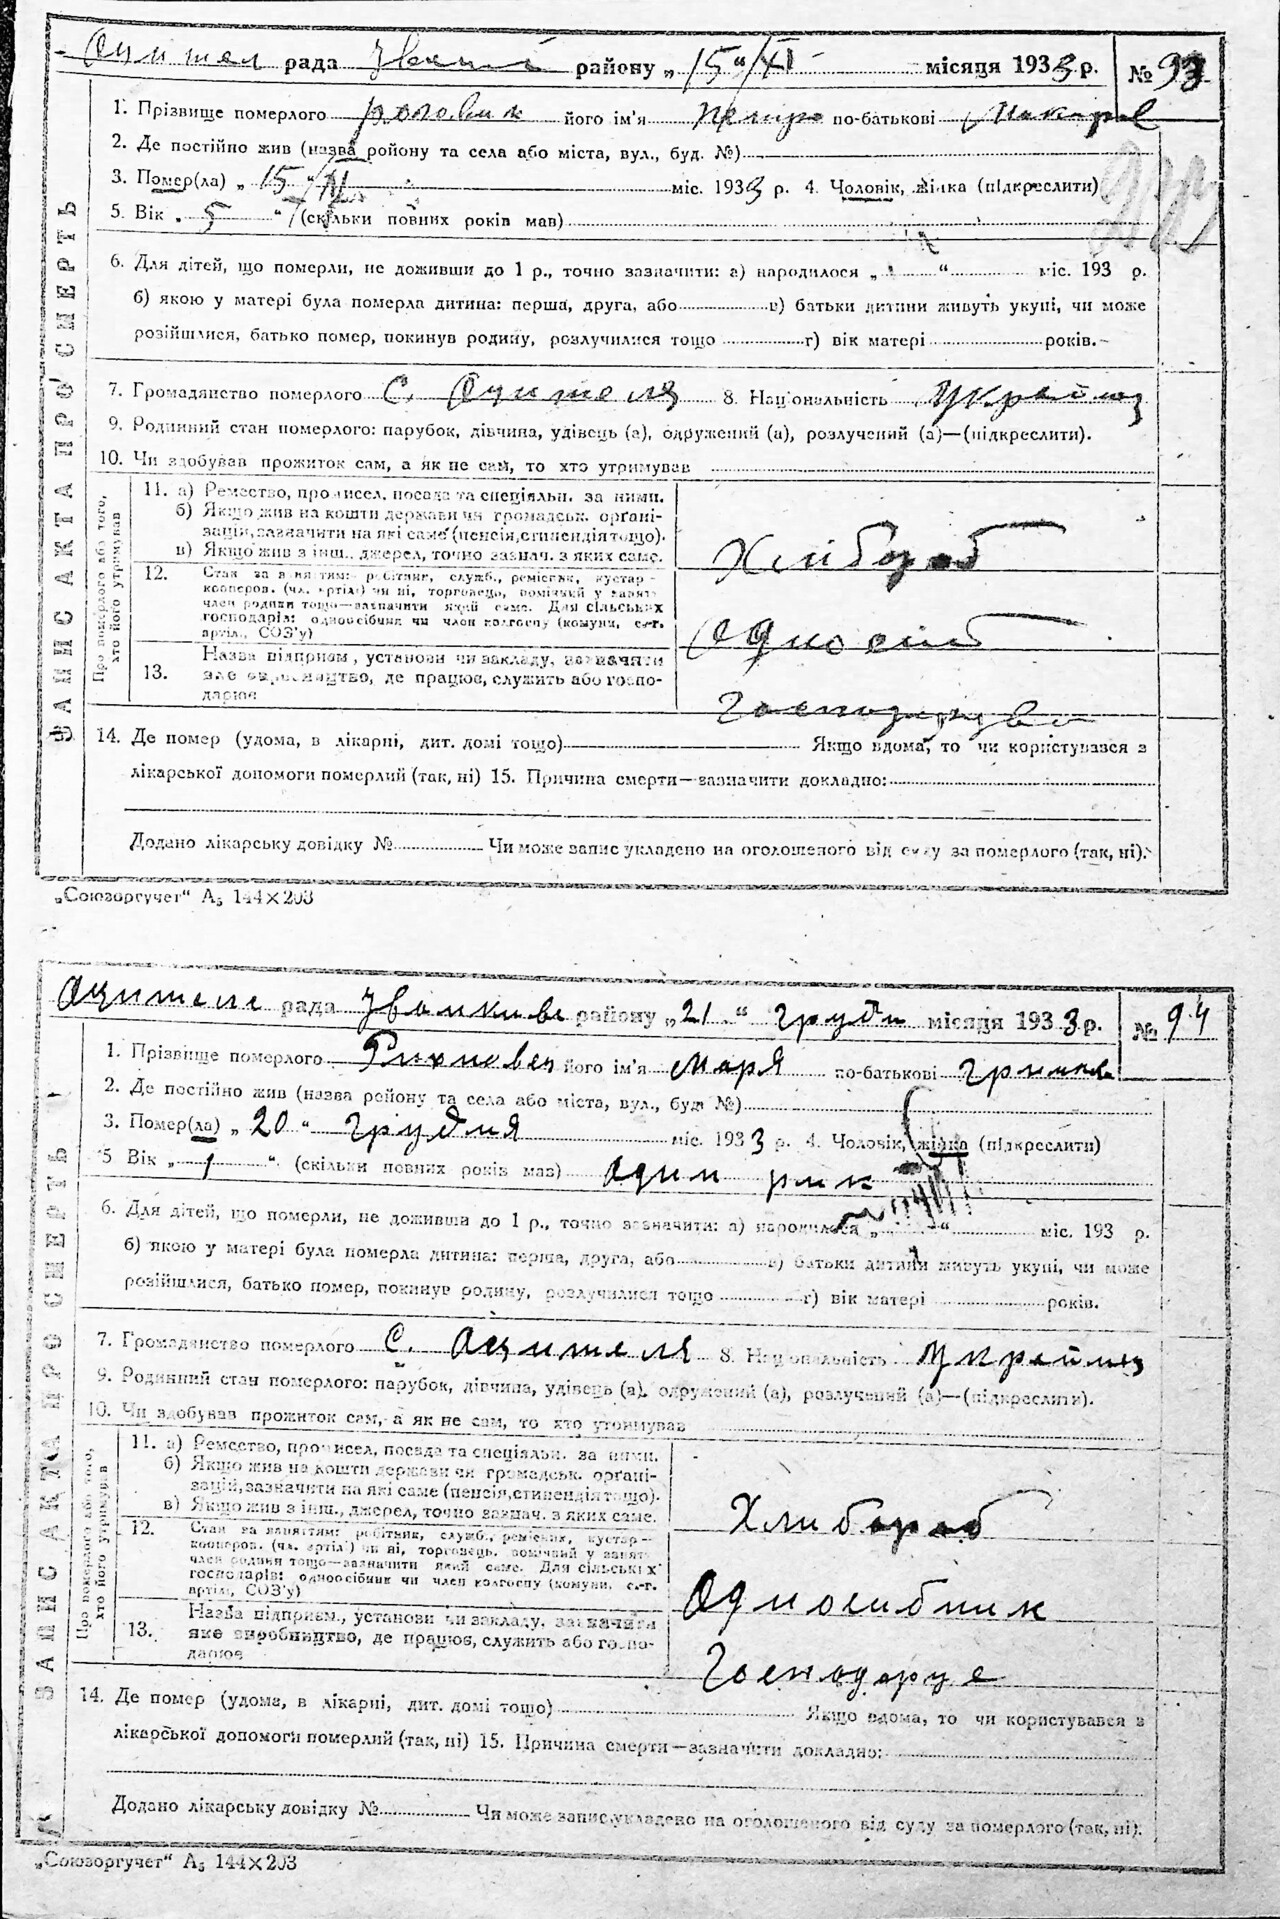 Оцител рада Зваш району „15“/XI місяця 1933 р. № 93
1. Прізвище померлого роговик його ім'я петро по-батькові Макаров
2. Де постійно жив (назва ройону та села або міста, вул., буд. №)
3. Помер(ла) „ 15 “ XI міс. 1933 р. 4. Чоловік, жінка (підкреслити)
5. Вік „ 5 “ (скільки повних років мав)
6. Для дітей, що померли, не доживши до 1 р., точно зазначити: а) народилося „ “ міс. 193 р.
б) якою у матері була померла дитина: перша, друга, або в) батьки дитини живуть укупі, чи може
розійшлися, батько помер, покинув родину, розлучилися тощо г) вік матері років.
7. Громадянство померлого С. Оцителя 8. Національність Українц
9. Родинний стан померлого: парубок, дівчина, удівець (а), одружений (а), розлучений (а)—(підкреслити).
10. Чи здобував прожиток сам, а як не сам, то хто утримував
ЗАПИС АКТА ПРО СМЕРТЬ
Про померлого або того, хто його утримував
11. а) Ремество, промисел, посада та спеціяльн. за ними.
б) Якщо жив на кошти держави чи громадськ. орґані-
зацій, зазначити на які саме (пенсія, стипендія тощо).
в) Якщо жив з інш., джерел, точно зазнач. з яких саме.
Хлибороб
12. Стан за заняттям: робітник, служб., ремісник, кустар—
кооперов. (чл. артілі) чи ні, торговець, помічний у занят.
член родини тощо—зазначити який саме. Для сільських
господарів: одноосібник чи член колгоспу (комуни, с.-г.
артіл., СОЗ'у)
Односіб
13. Назва підприєм., установи чи закладу, зазначити
яке виробництво, де працює, служить або госпо-
дарює
14. Де помер (удома, в лікарні, дит. домі тощо) Якщо вдома, то чи користувався з
лікарської допомоги померлий (так, ні) 15. Причина смерти—зазначити докладно:
Додано лікарську довідку № Чи може запис укладено на оголошеного від суду за померлого (так, ні).
„Союзоргучет“ А₅ 144×203
Оцители рада Званкивс району „21“ Грудн місяця 1933 р. № 94
1. Прізвище померлого його ім'я Маря по-батькові
2. Де постійно жив (назва ройону та села або міста, вул., буд. №)
3. Помер(ла) „ 20 “ Грудня міс. 1933 р. 4. Чоловік, жінка (підкреслити)
5 Вік „ 1 “ (скільки повних років мав) Один рик
6. Для дітей, що померли, не доживши до 1 р., точно зазначити: а) народилося „ “ міс. 193 р.
б) якою у матері була померла дитина: перша, друга, або в) батьки дитини живуть укупі, чи може
розійшлися, батько помер, покинув родину, розлучилися тощо г) вік матері років.
7. Громадянство померлого С. Оцителя 8. Національність Україниц
9. Родинний стан померлого: парубок, дівчина, удівець (а), одружений (а), розлучений (а)—(підкреслити).
10. Чи здобував прожиток сам, а як не сам, то хто утримував
ЗАПИС АКТА ПРО СМЕРТЬ
Про померлого або того, хто його утримував
11. а) Ремество, промисел, посада та спеціяльн. за ними.
б) Якщо жив на кошти держави чи громадськ. орґані-
зацій, зазначити на які саме (пенсія, стипендія тощо).
в) Якщо жив з інш., джерел, точно зазнач. з яких саме.
Хлибороб
12. Стан за заняттям: робітник, служб., ремісник, кустар—
кооперов. (чл. артілі) чи ні, торговець, помічний у занят.
член родини тощо—зазначити який саме. Для сільських
господарів: одноосібник чи член колгоспу (комуни, с.-г.
артіл., СОЗ'у)
Односибник
13. Назва підприєм., установи чи закладу, зазначити
яке виробництво, де працює, служить або госпо-
дарює
Господарує
14. Де помер (удома, в лікарні, дит. домі тощо) Якщо вдома, то чи користувався з
лікарської допомоги померлий (так, ні) 15. Причина смерти—зазначити докладно:
Додано лікарську довідку № Чи може запис укладено на оголошеного від суду за померлого (так, ні).
„Союзоргучет“ А₅ 144×203